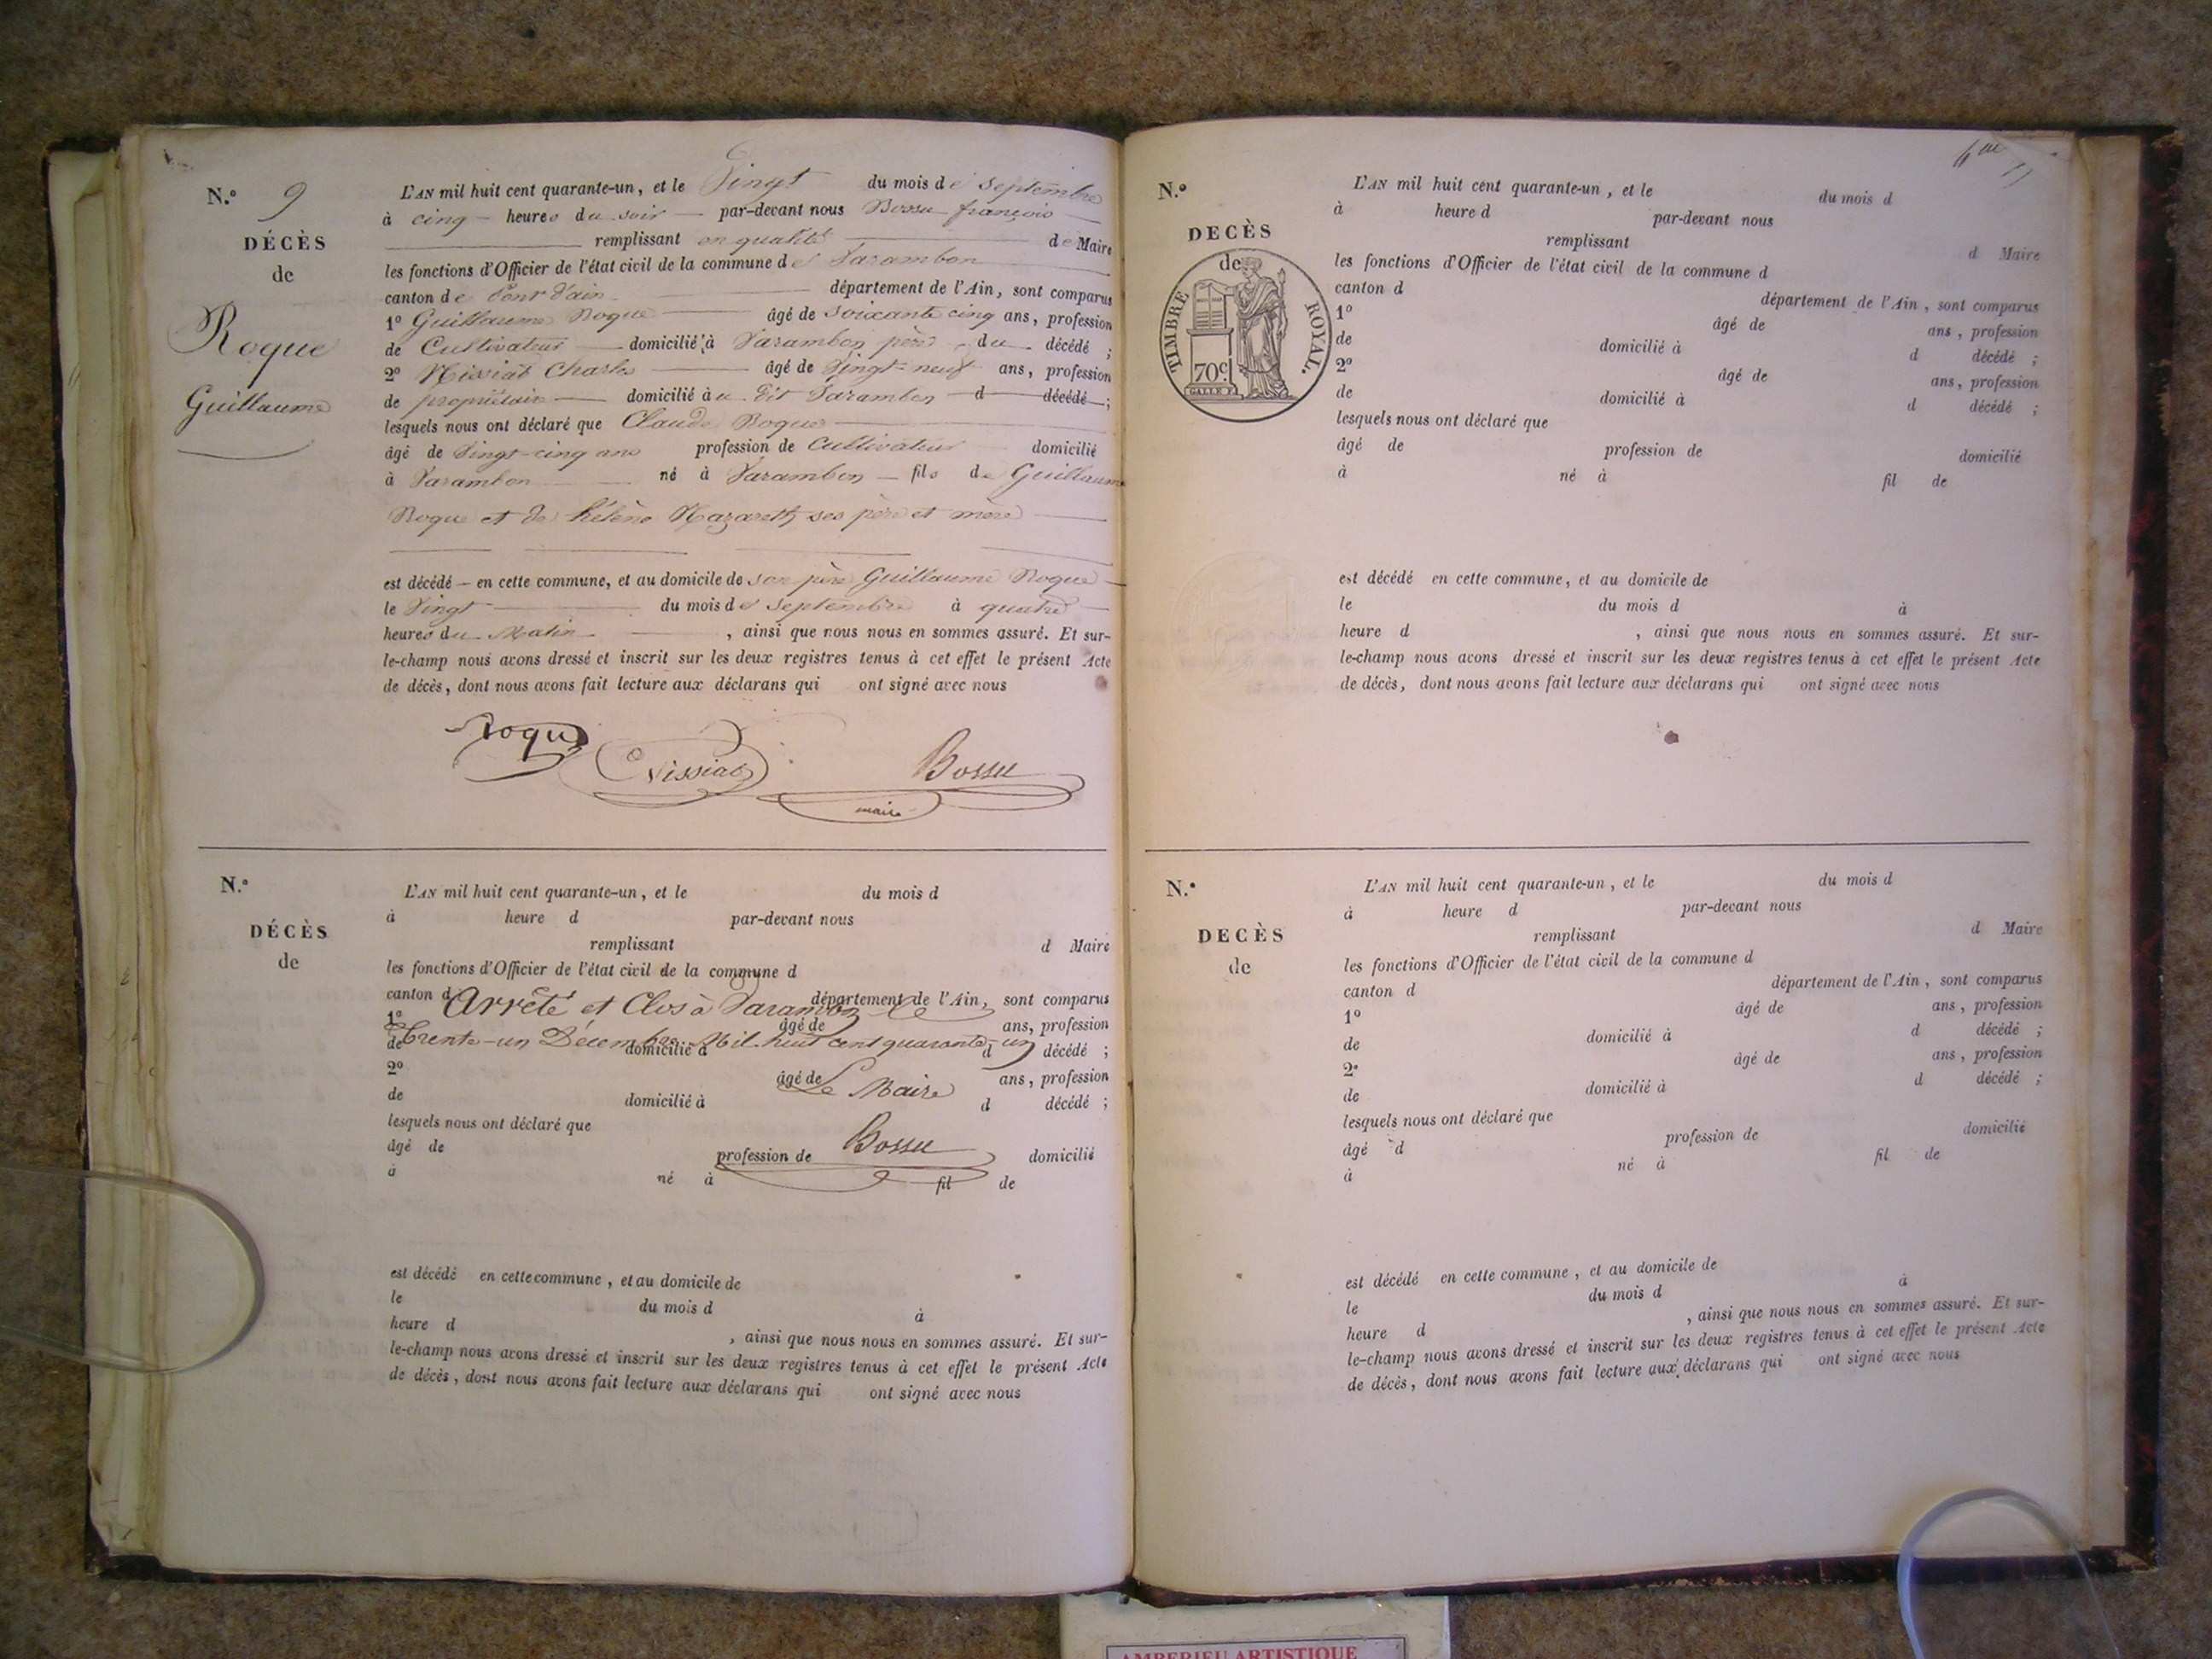 N.º 9
DÉCÈS
de
Roque
Guillaume
L'AN mil huit cent quarante-un, et le Vingt du mois de Septembre
à cinq heures du soir par-devant nous Bossu françois
remplissant en qualité de Maire
les fonctions d'Officier de l'état civil de la commune de Varambon
canton de Pont d'ain département de l'Ain, sont comparus
1º Guillaume Roque âgé de soixante cinq ans, profession
de Cultivateur domicilié à Varambon père du décédé ;
2º Nissiat Charles âgé de Vingt-neuf ans, profession
de propriétaire domicilié à u dit Varambon d décédé ;
lesquels nous ont déclaré que Claude Roque
âgé de Vingt-cinq ans profession de Cultivateur domicilié
à Varambon né à Varambon fils de Guillaume
Roque et de hélène Nazareth ses père et mère
est décédé en cette commune, et au domicile de son père Guillaume Roque
le Vingt du mois de Septembre à quatre
heures du Matin , ainsi que nous nous en sommes assuré. Et sur-
le-champ nous avons dressé et inscrit sur les deux registres tenus à cet effet le présent Acte
de décès, dont nous avons fait lecture aux déclarans qui ont signé avec nous
Roque Nissiat Bossu
maire
N.º
DÉCÈS
de
L'AN mil huit cent quarante-un, et le du mois d
à heure d par-devant nous
remplissant d Maire
les fonctions d'Officier de l'état civil de la commune d
canton d département de l'Ain, sont comparus
Arrêté et Clos à Varambon le
1º âgé de ans, profession
trente-un Décembre Mil huit cent quarante-un
de domicilié à d décédé ;
2º âgé de ans, profession
Le Maire
de domicilié à d décédé ;
lesquels nous ont déclaré que
Bossu
âgé de profession de domicilié
à né à fil de
est décédé en cette commune, et au domicile de
le du mois d à
heure d , ainsi que nous nous en sommes assuré. Et sur-
le-champ nous avons dressé et inscrit sur les deux registres tenus à cet effet le présent Acte
de décès, dont nous avons fait lecture aux déclarans qui ont signé avec nous
N.º
DECÈS
de
TIMBRE ROYAL.
70c.
L'AN mil huit cent quarante-un, et le du mois d
à heure d par-devant nous
remplissant d Maire
les fonctions d'Officier de l'état civil de la commune d
canton d département de l'Ain, sont comparus
1º âgé de ans, profession
de domicilié à d décédé ;
2º âgé de ans, profession
de domicilié à d décédé ;
lesquels nous ont déclaré que
âgé de profession de domicilié
à né à fil de
est décédé en cette commune, et au domicile de
le du mois d à
heure d , ainsi que nous nous en sommes assuré. Et sur-
le-champ nous avons dressé et inscrit sur les deux registres tenus à cet effet le présent Acte
de décès, dont nous avons fait lecture aux déclarans qui ont signé avec nous
N.º
DECÈS
de
L'AN mil huit cent quarante-un, et le du mois d
à heure d par-devant nous
remplissant d Maire
les fonctions d'Officier de l'état civil de la commune d
canton d département de l'Ain, sont comparus
1º âgé de ans, profession
de domicilié à d décédé ;
2º âgé de ans, profession
de domicilié à d décédé ;
lesquels nous ont déclaré que
âgé d profession de domicilié
à né à fil de
est décédé en cette commune, et au domicile de
le du mois d à
heure d , ainsi que nous nous en sommes assuré. Et sur-
le-champ nous avons dressé et inscrit sur les deux registres tenus à cet effet le présent Acte
de décès, dont nous avons fait lecture aux déclarans qui ont signé avec nous
AMBERIEU ARTISTIQUE